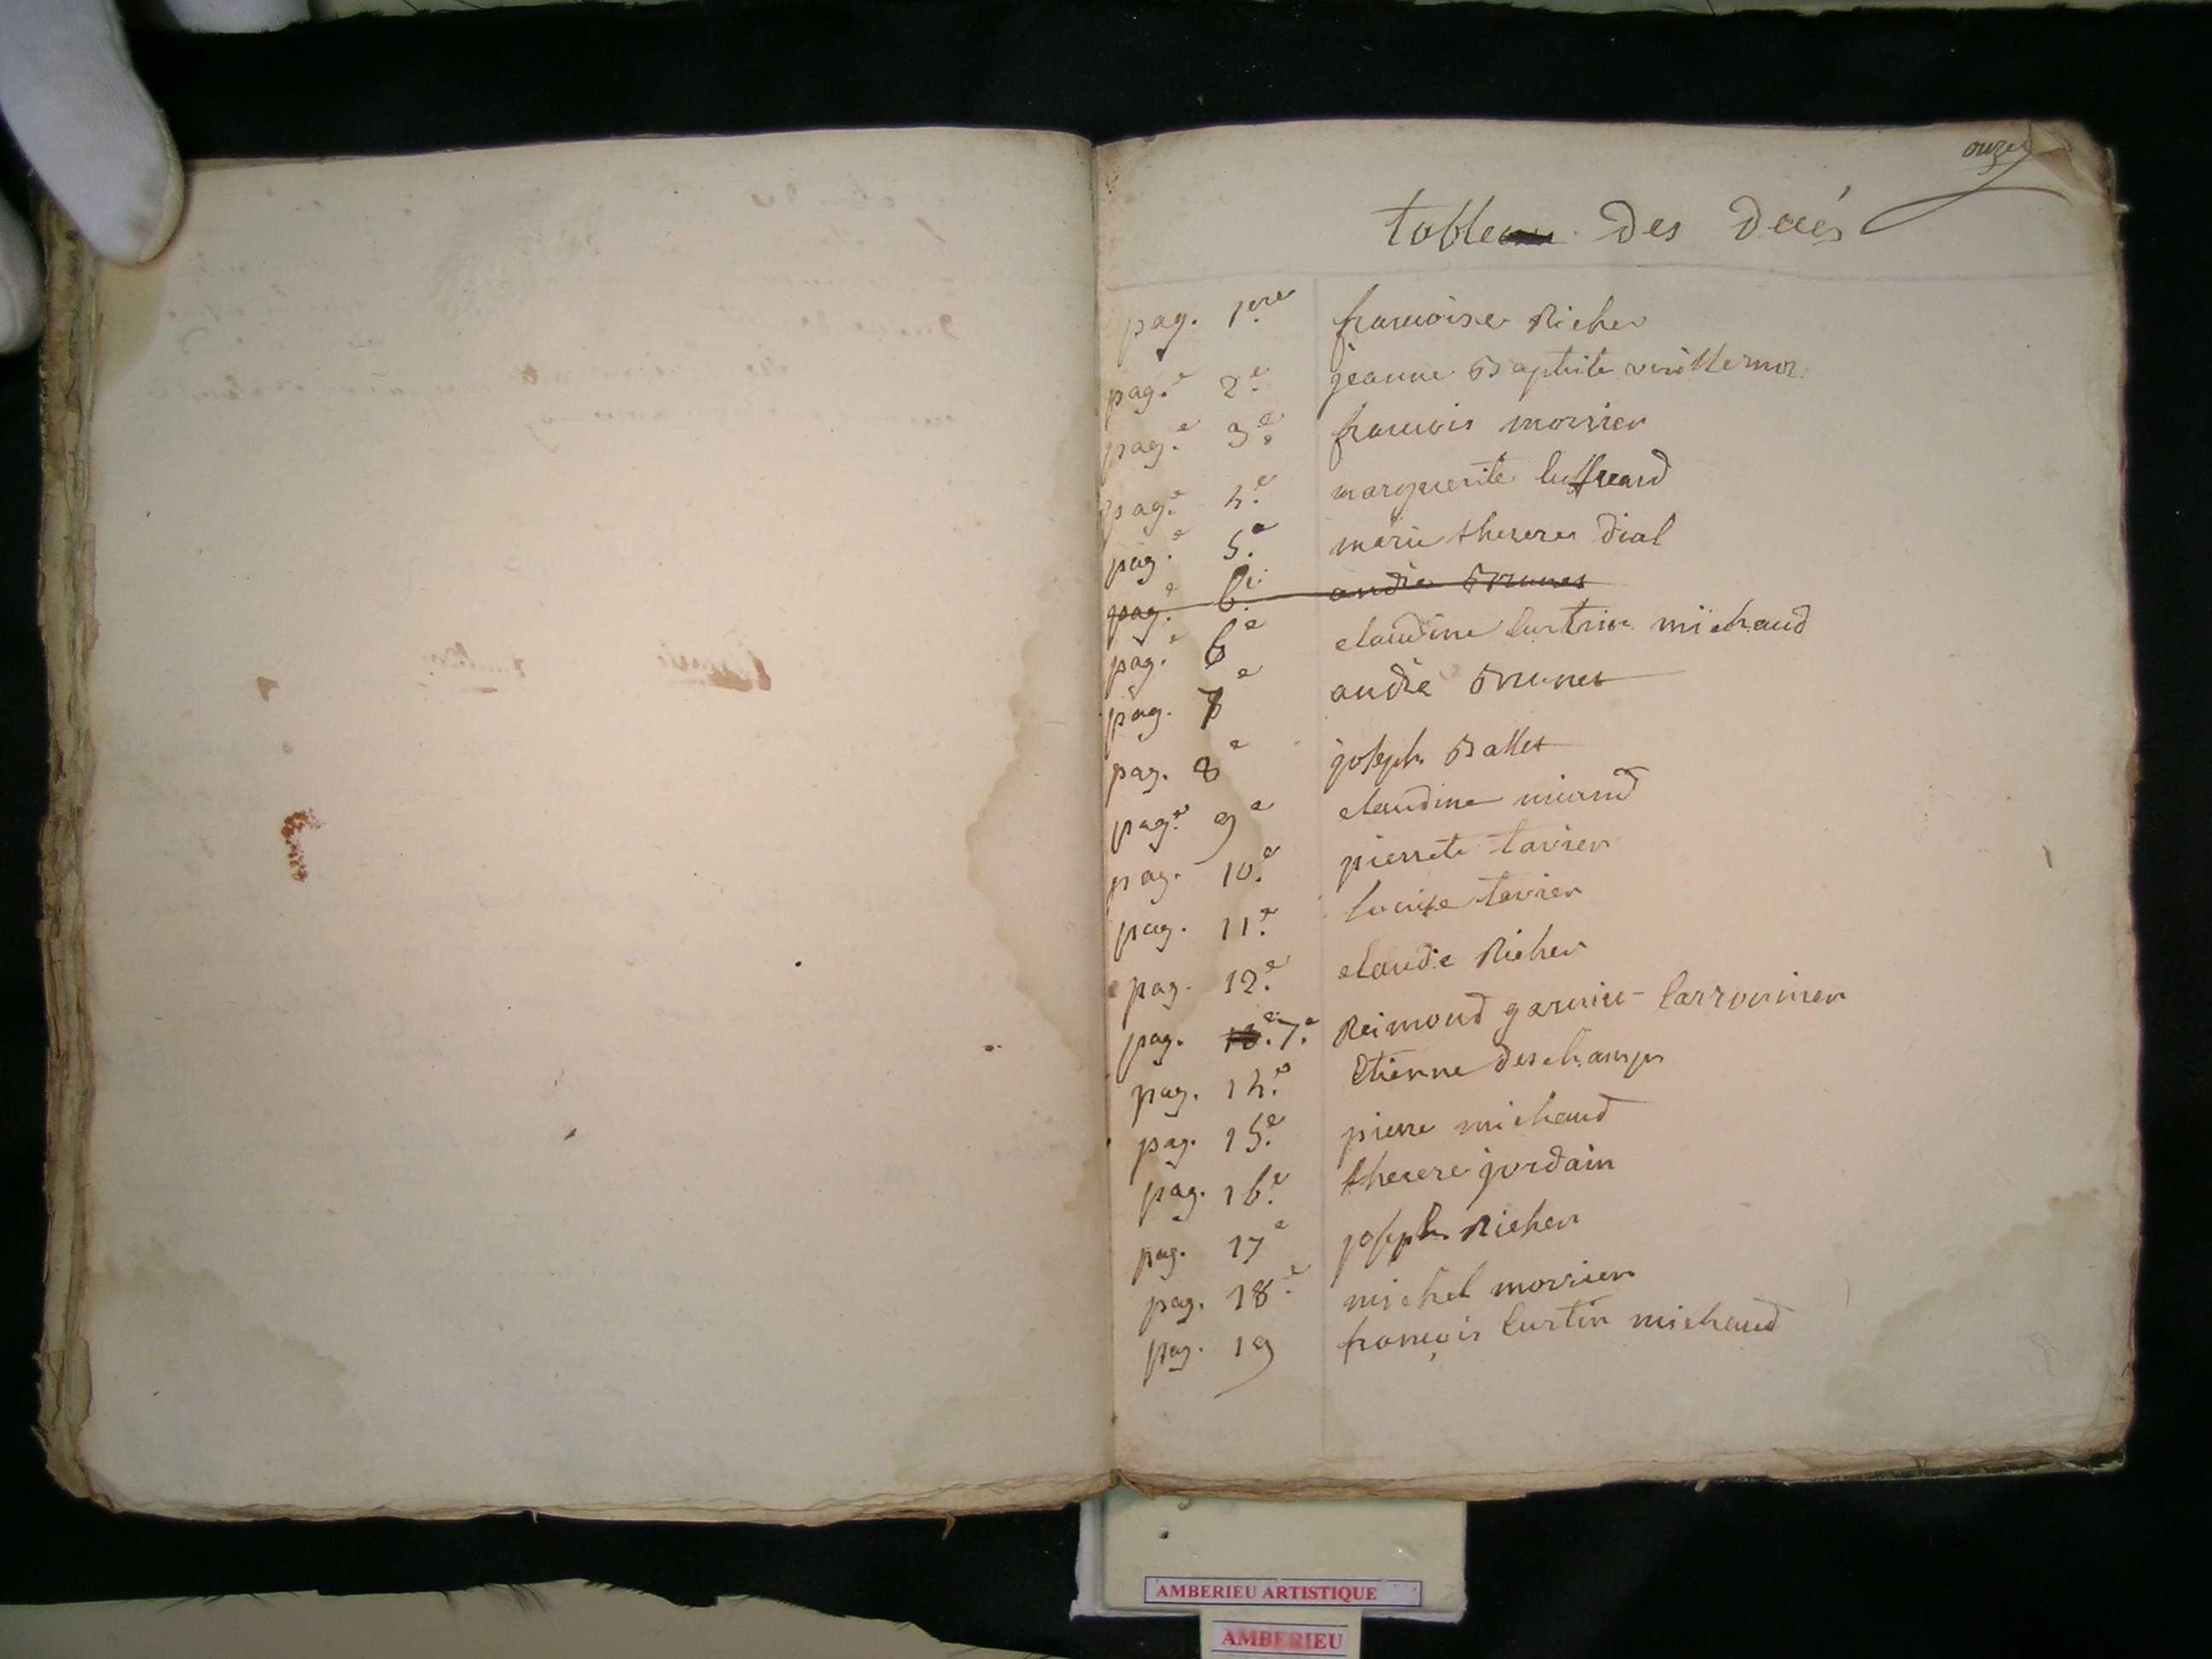 onze
table des decés
pag. 1ere francoise Richer
page. 2e. jeanne Baptiste vuillermoz
page. 3e. francois morrier
page. 4e. marguerite
page. 5e. marie therese dial
page. 6e. andré Brunet
page. 6e claudine lustrin michaud
pag. 7e andré Brunet
pag. 8e joseph Ballet
page. 9e claudine
pag. 10e. pierrete tavier
pag. 11e. louise tavier
pag. 12e. claude Richer
pag. 13e. 7e. Reimond garnier-
pag. 14e. Etienne deschamps
pag. 15e. pierre michaud
pag. 16e. therese jordain
pag. 17e joseph Richer
pag. 18e. michel morrier
pag. 19 françois lustin michaud
AMBERIEU ARTISTIQUE
AMBERIEU